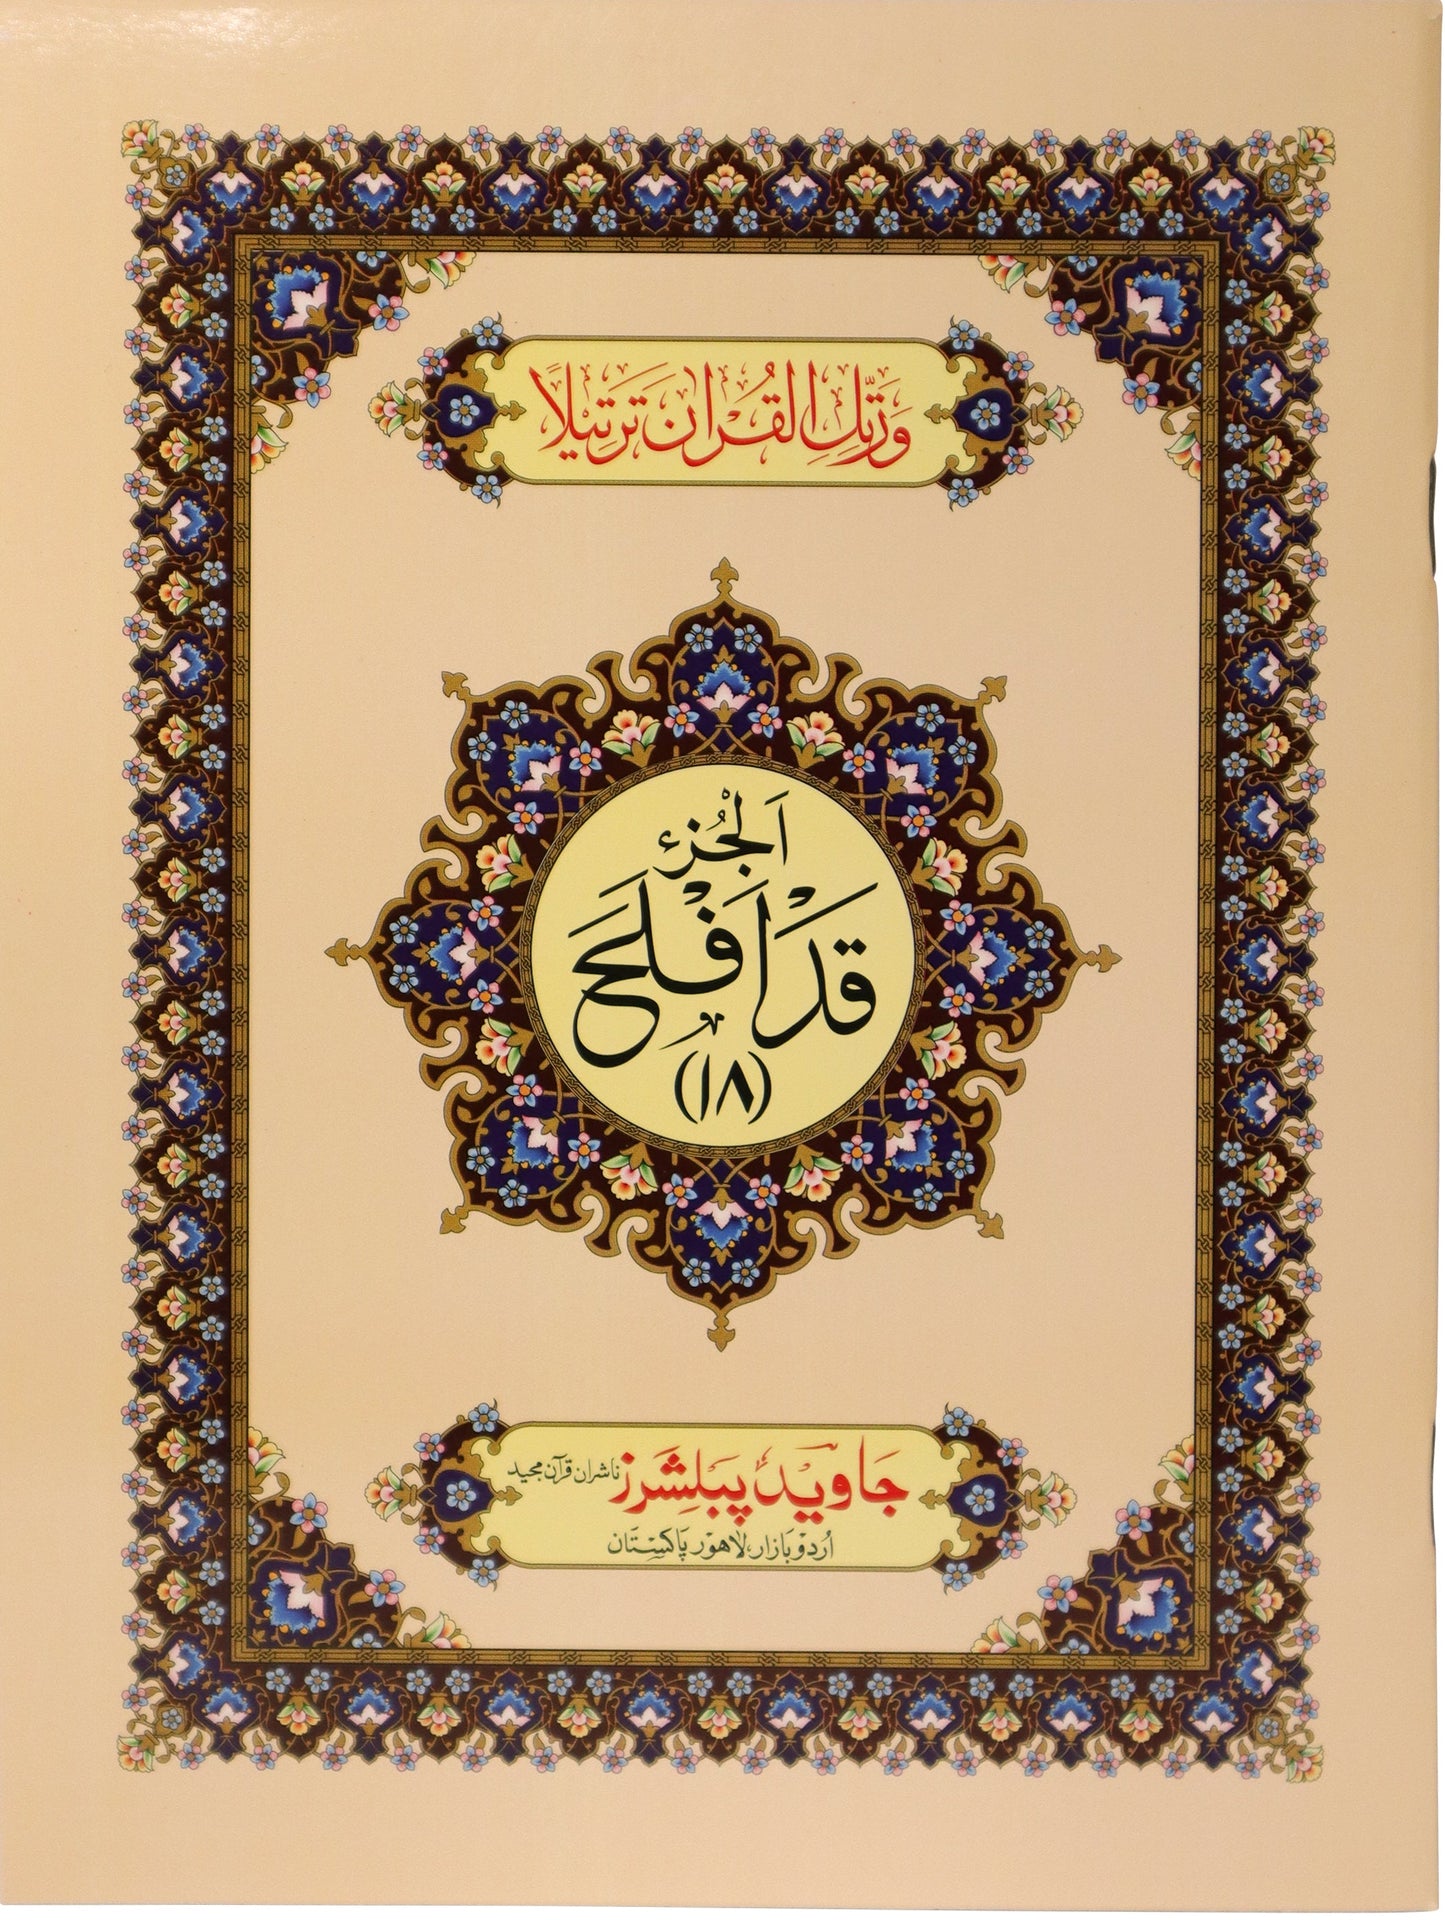 وَرَتِّلِ الْقُرْاٰنَ تَرْتِيْلًا
اَلْجُزْء
قَدْ اَفْلَحَ
(١٨)
جاوید پبلشرز ناشران قرآن مجید
اُردو بازار، لاہور پاکستان